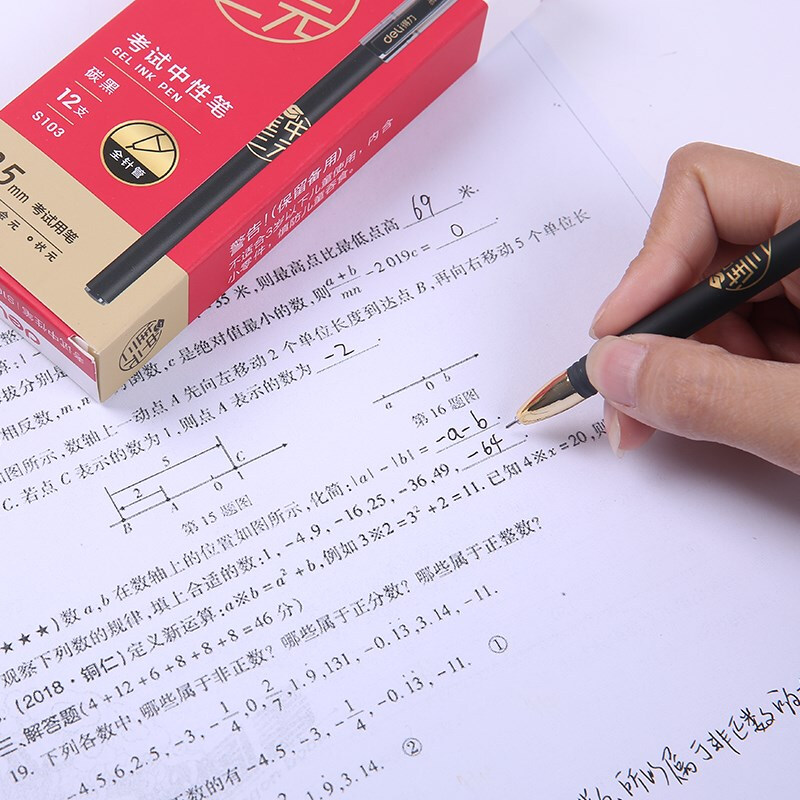 考试中性笔
GEL INK PEN
碳黑
12支
S103
全针管
35mm 考试用笔
会元 状元
deli得力
警告!(保留备用)
不适合3岁以下儿童使用,内含
小零件,谨防儿童吞食。
35米,则最高点比最低点高 69 米.
倒数,c是绝对值最小的数,则a+b/mn-2 019c= 0 .
相反数,m,n
数轴上一动点A先向左移动2个单位长度到达点B,再向右移动5个单位长
C.若点C表示的数为1,则点A表示的数为 -2 .
如图所示,
a 0 b
第16题图
5
2
B A 0 1 C
第15题图
)数a,b在数轴上的位置如图所示,化简:|a|-|b|= -a-b .
观察下列数的规律,填上合适的数:1,-4,9,-16,25,-36,49, -64 .
(2018·铜仁)定义新运算:a※b=a²+b,例如3※2=3²+2=11.已知4※x=20,则
三、解答题(4+12+6+8+8+8=46分)
19. 下列各数中,哪些属于非正数?哪些属于正分数?哪些属于正整数?
-4.5,6,2.5,-3,-1/4,0,2/7,1.9,131,-0.13,3.14,-11.
正数的有-4.5,-3,-1/4,-0.13,-11. ①
1.9,3.14. ②
所的属于非正数的